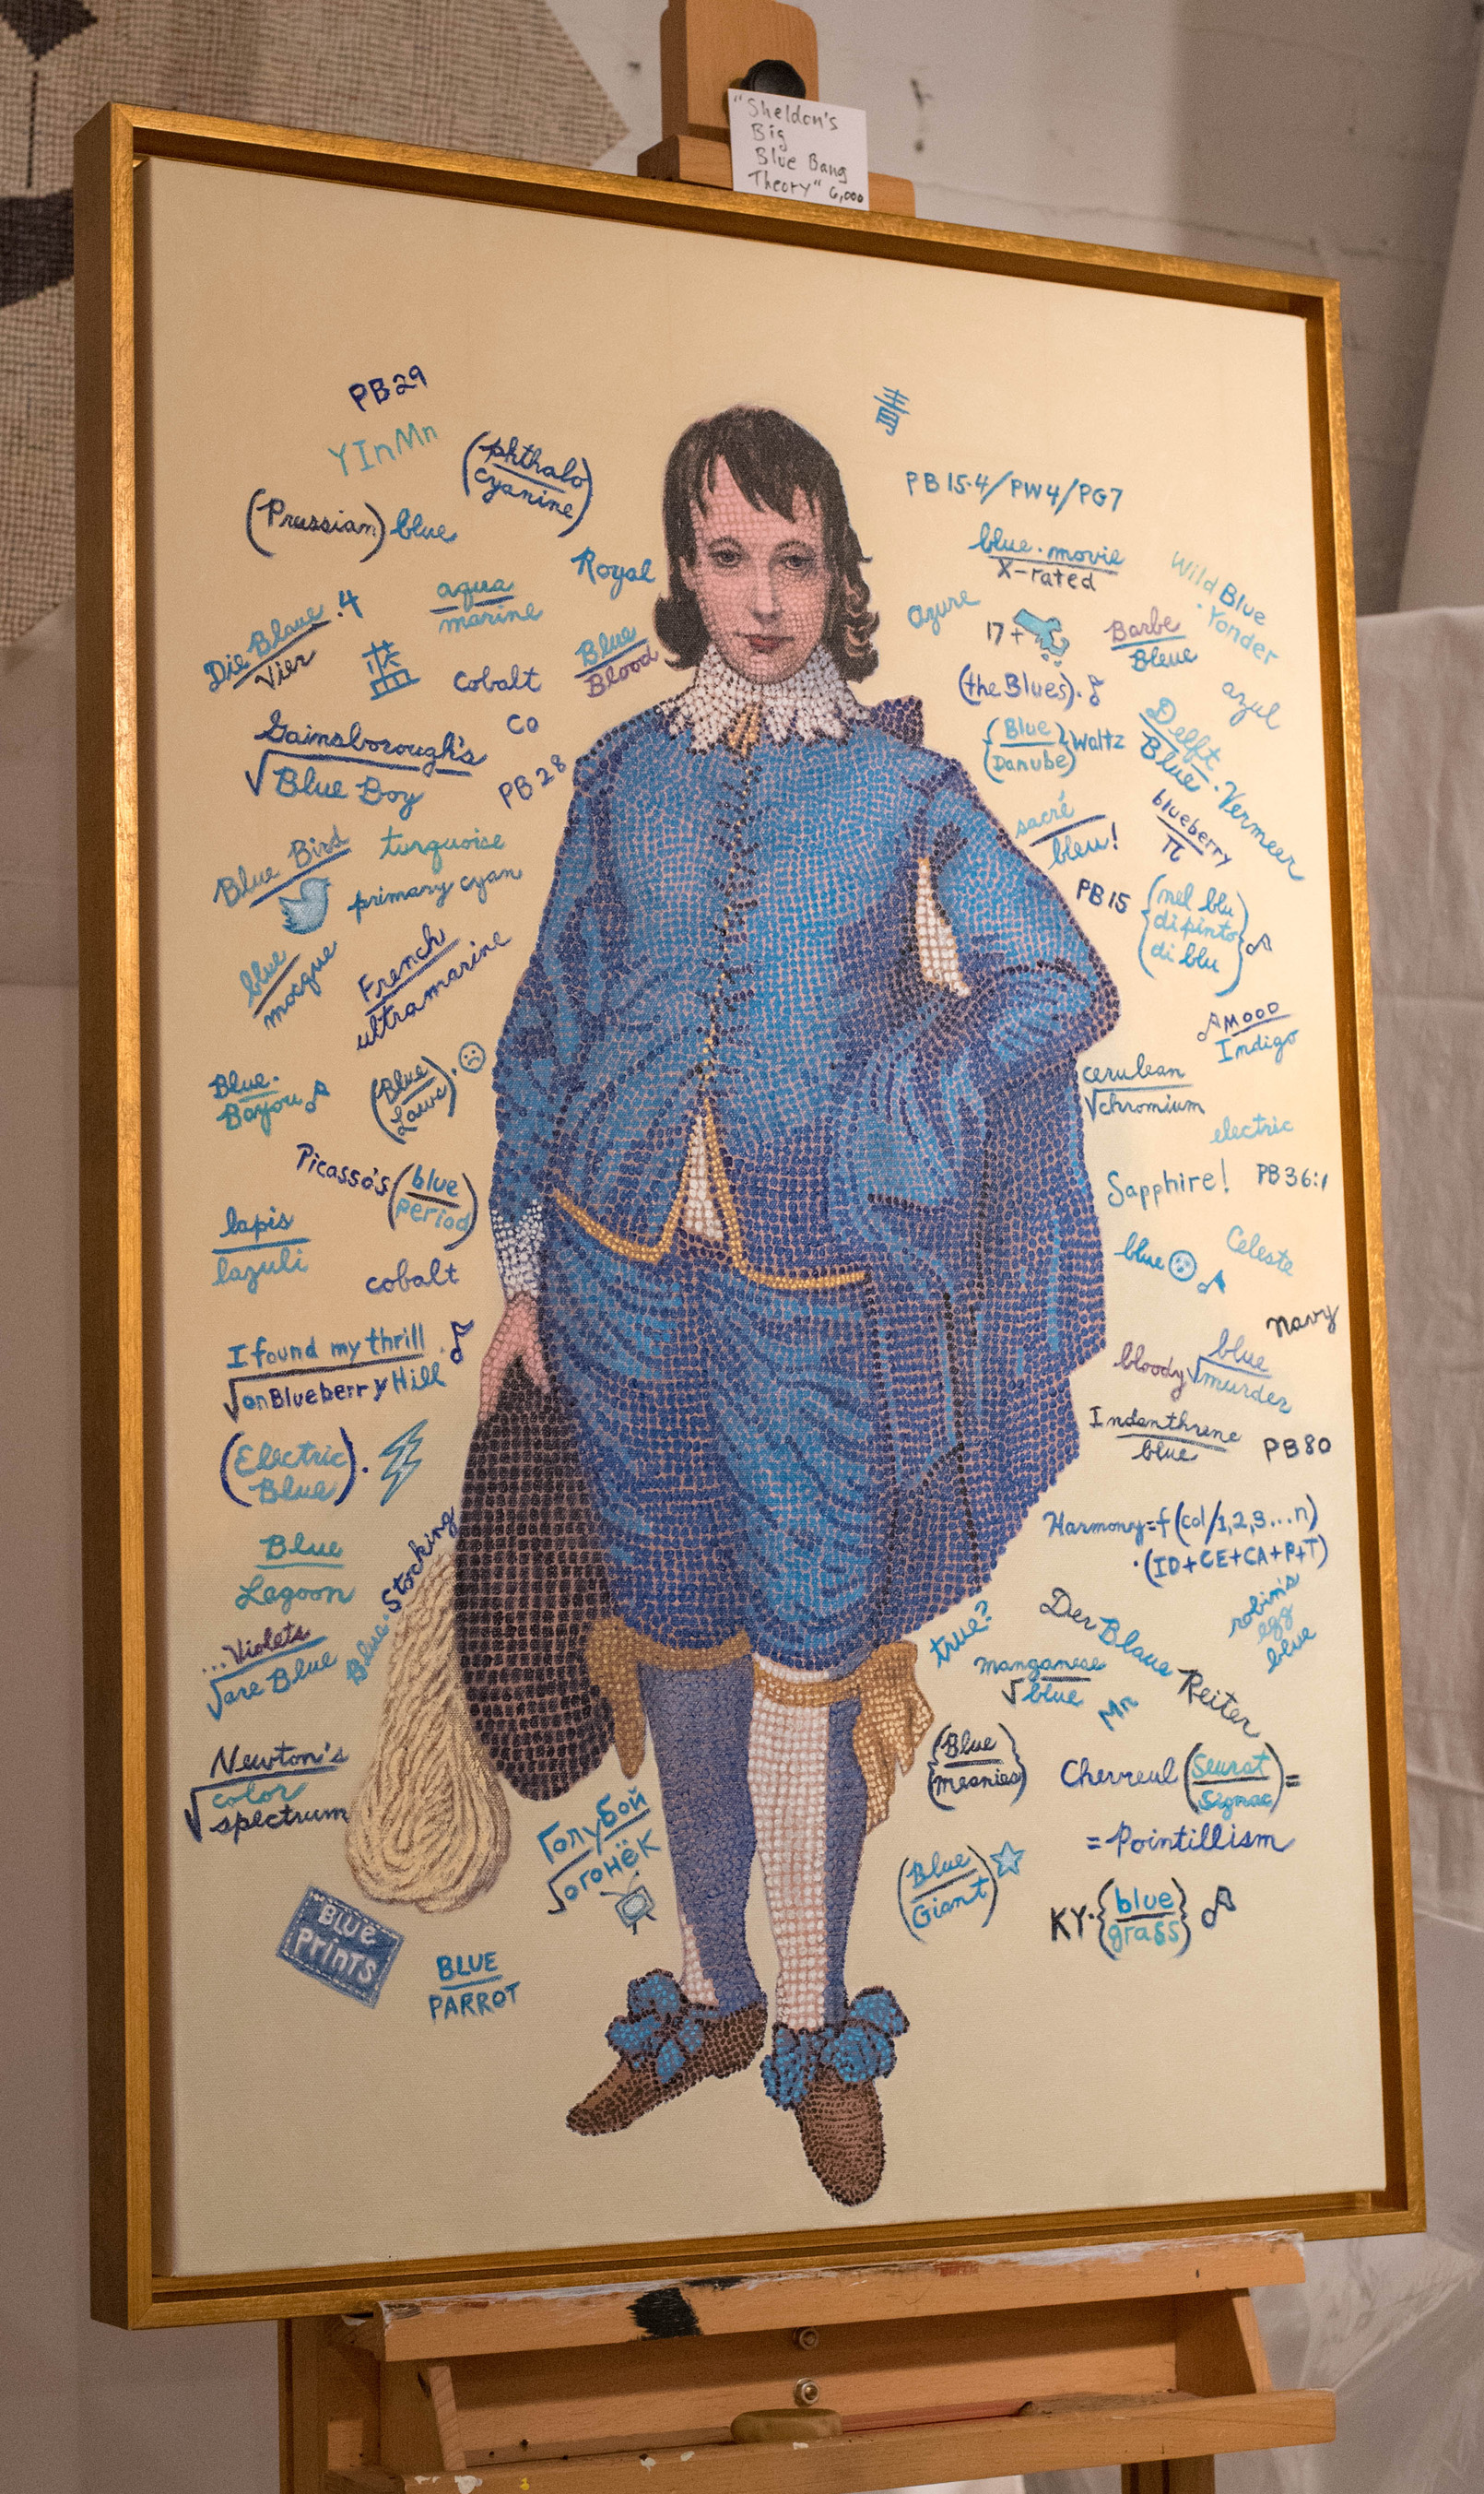 "Sheldon's
Big
Blue Bang
Theory" 6,000
PB29
YInMn
(phthalo
cyanine)
(Prussian) blue
Royal
aqua
marine
Die Blaue .4
Vier
藍
Cobalt
Co
Blue
Blood
Gainsborough's
√Blue Boy
PB 28
Blue Bird
turquoise
primary cyan
blue
mosque
French
ultramarine
Blue.
Bayou ♪
(Blue
Laws).☹
Picasso's (blue
period)
lapis
lazuli
cobalt
I found my thrill . ♪
√on Blueberry Hill
(Electric
Blue).
Blue
Lagoon
Blue Stocking
...Violets
√are Blue
Newton's
√color
spectrum
Голубой
√огонёк
BLUE
Prints
BLUE
PARROT
青
PB 15.4/PW4/PG7
blue.movie
X-rated
Wild Blue
. Yonder
azure
17+
Barbe
Bleue
(the Blues).♪
azul
{Blue
Danube} Waltz
Delft
Blue . Vermeer
sacré
bleu!
blueberry
π
PB15
{nel blu
dipinto
di blu} ♪
♪MOOD
Indigo
cerulean
√chromium
electric
Sapphire!
PB36:1
blue ♪
Celeste
navy
bloody √blue
murder
Indanthrene
blue
PB80
Harmony=f(col/1,2,3...n)
.(ID+CE+CA+P+T)
robin's
egg
blue
true?
Der Blaue Reiter
manganese
√blue
Mn
{Blue
meanies}
Chevreul (Seurat
Signac)=
= Pointillism
(Blue
Giant)☆
KY.{blue
grass} ♪